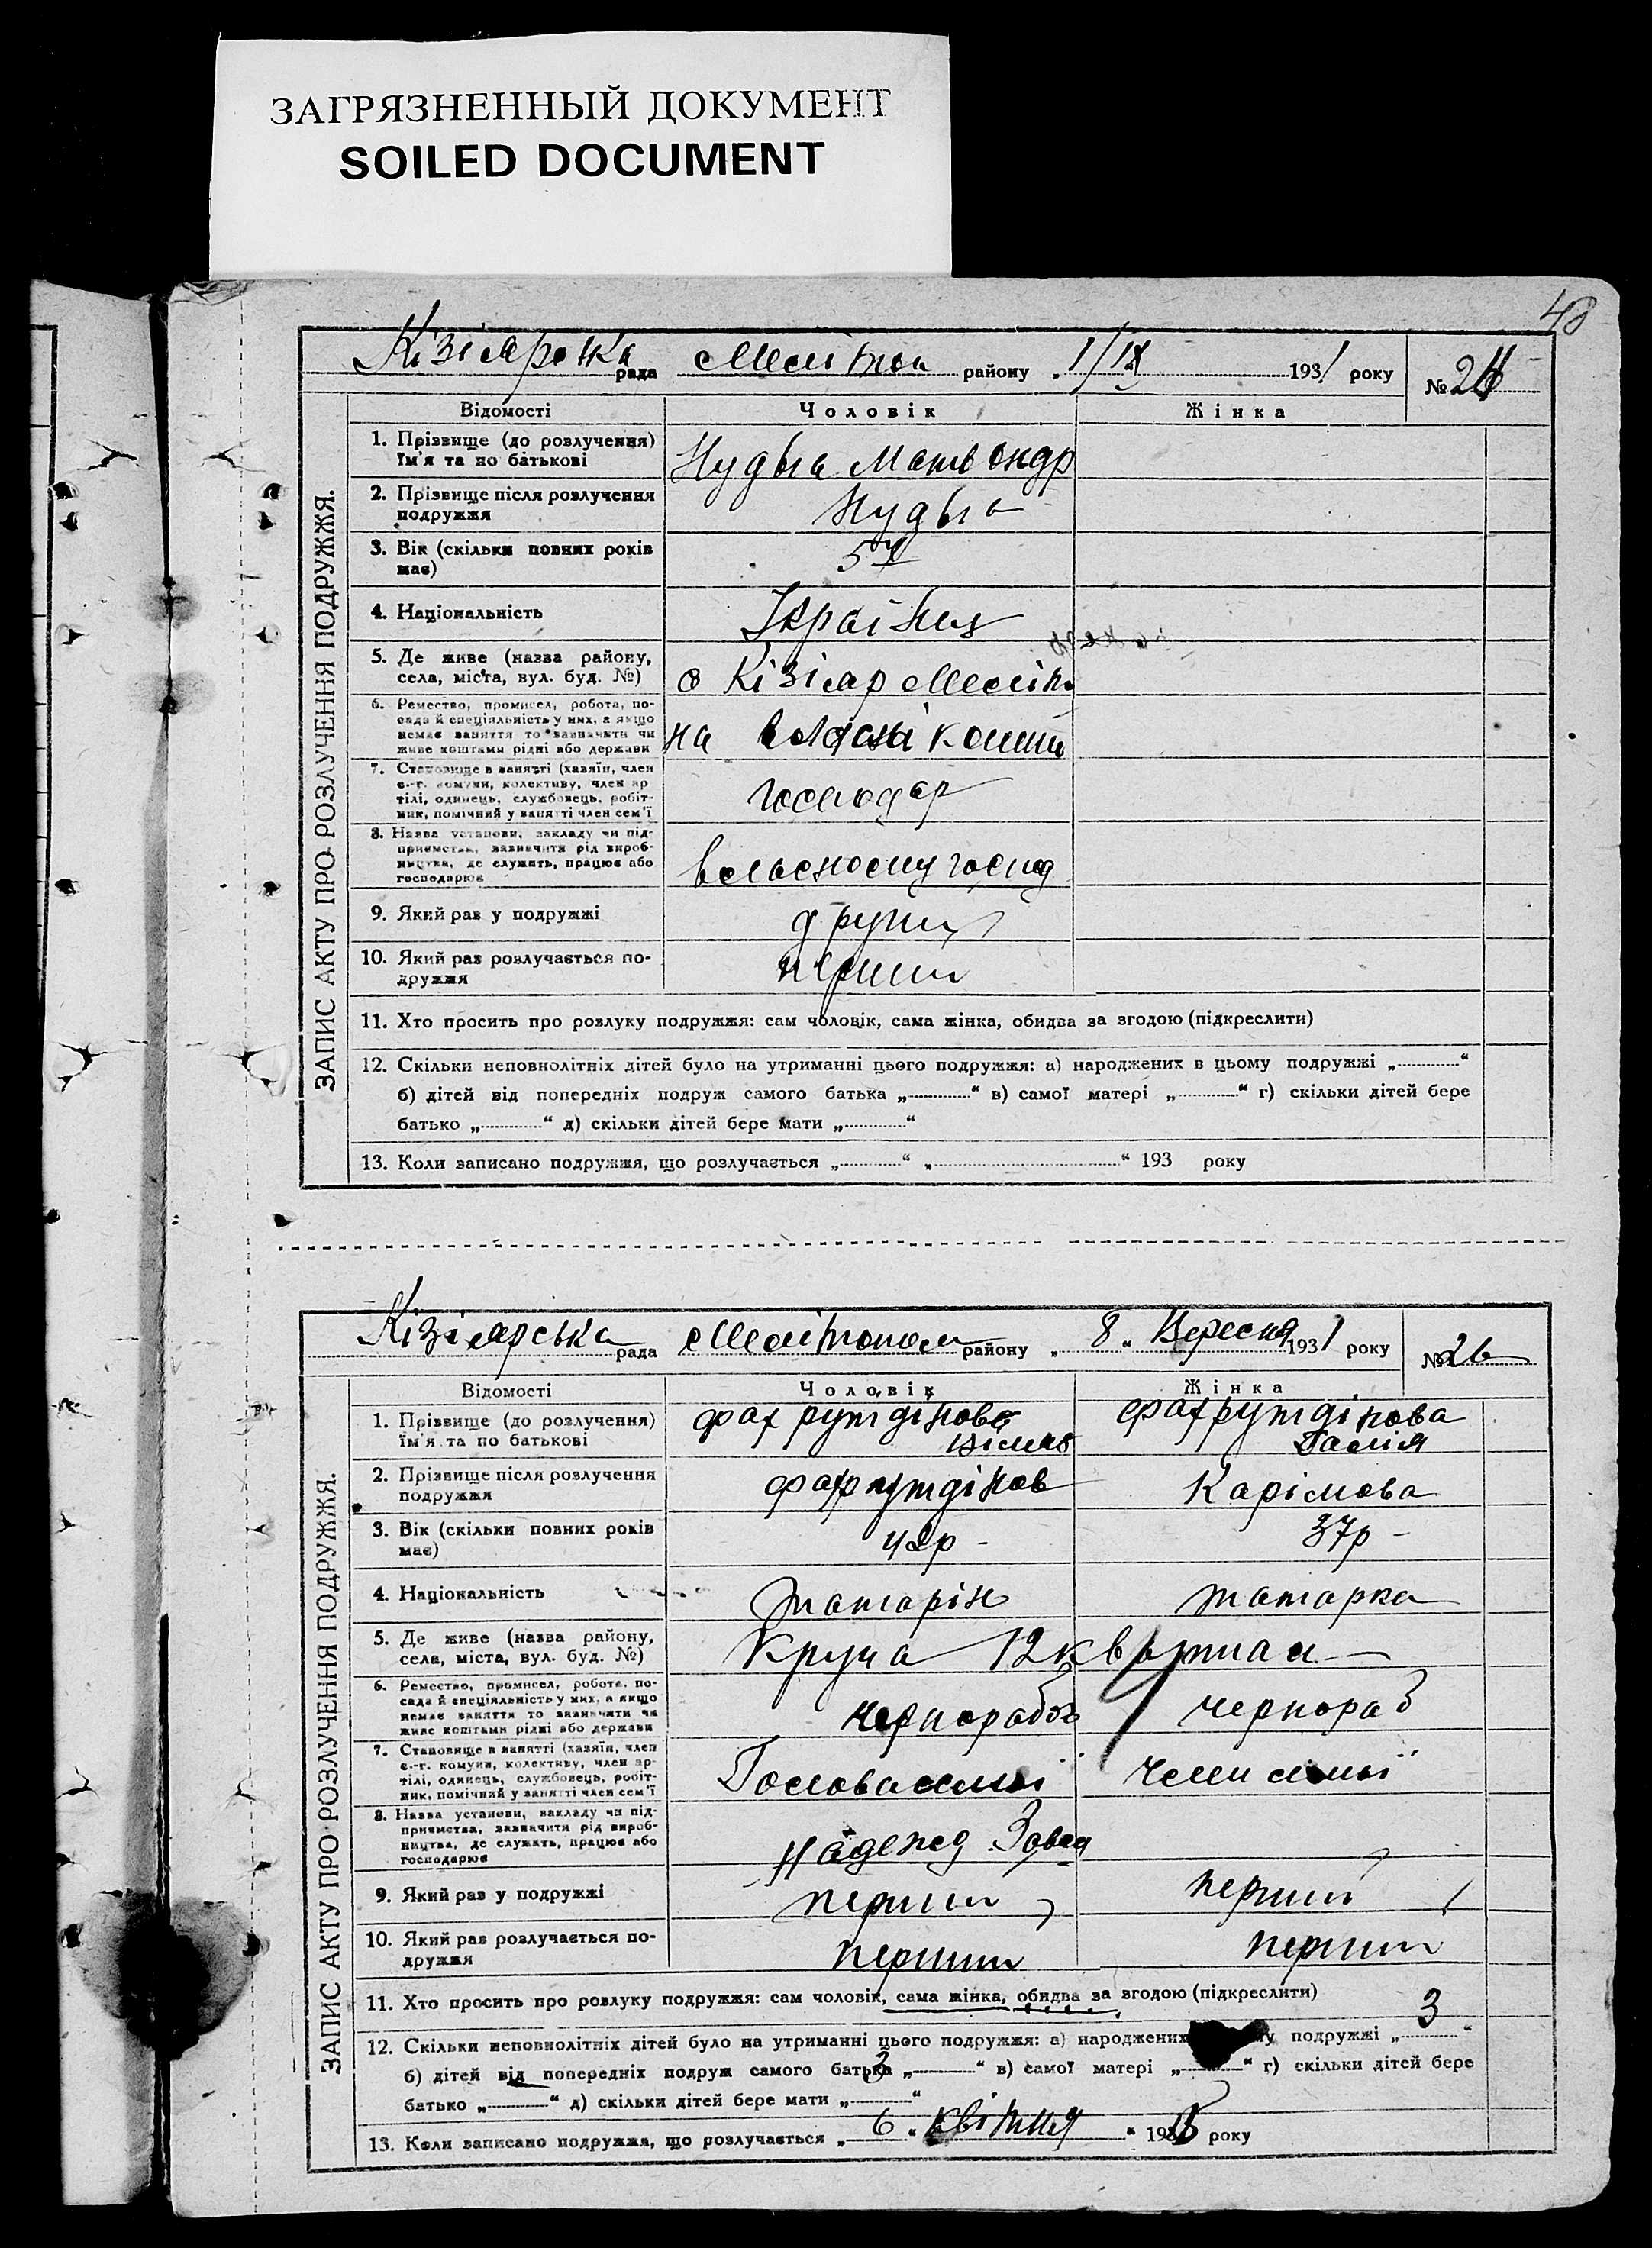 ЗАГРЯЗНЕННЫЙ ДОКУМЕНТ
SOILED DOCUMENT
48
Кізіярська рада Мелітоп району „1/IX 1931 року № 24
ЗАПИС АКТУ ПРО РОЗЛУЧЕННЯ ПОДРУЖЖЯ.
Відомості Чоловік Жінка
1. Прізвище (до розлучення) Ім'я та по батькові
Нудьга Матв Андр
2. Прізвище після розлучення подружжя
Нудьга
3. Вік (скільки повних років має)
4. Національність
Україн
5. Де живе (назва району, села, міста, вул. буд. №)
с Кізіяр Меліт
6. Ремество, промисел, робота, посада й спеціяльність у них, а якщо немає заняття то зазначити чи живе коштами рідні або держави
на власні кошти
7. Становище в занятті (хазяїн, член с.-г. комуни, колективу, член артілі, одинець, службовець, робітник, помічний у занятті член сем'ї
господар
8. Назва установи, закладу чи підприємства, зазначити рід виробництва, де служить, працює або господарює
9. Який раз у подружжі
други
10. Який раз розлучається подружжя
перший
11. Хто просить про розлуку подружжя: сам чоловік, сама жінка, обидва за згодою (підкреслити)
12. Скільки неповнолітніх дітей було на утриманні цього подружжя: а) народжених в цьому подружжі „ “
б) дітей від попередніх подруж самого батька „ “ в) самої матері „ “ г) скільки дітей бере
батько „ “ д) скільки дітей бере мати „ “
13. Коли записано подружжя, що розлучається „ “ „ “ 193 року
Кізіярська рада Мелітопол району „ 8 „ Вересня 1931 року № 26
ЗАПИС АКТУ ПРО РОЗЛУЧЕННЯ ПОДРУЖЖЯ.
Відомості Чоловік Жінка
1. Прізвище (до розлучення) Ім'я та по батькові
Фахрутдінов Фахрутдінова
Галія
2. Прізвище після розлучення подружжя
Фахрутдінов Карімова
3. Вік (скільки повних років має)
42р - 37р -
4. Національність
татарін татарка
5. Де живе (назва району, села, міста, вул. буд. №)
Круча 12 квартал
6. Ремество, промисел, робота, посада й спеціяльність у них, а якщо немає заняття то зазначити чи живе коштами рідні або держави
чернороб чернораб
7. Становище в занятті (хазяїн, член с.-г. комуни, колективу, член артілі, одинець, службовець, робітник, помічний у занятті член сем'ї
Голова семьї член семьї
8. Назва установи, закладу чи підприємства, зазначити рід виробництва, де служить, працює або господарює
9. Який раз у подружжі
перший перший
10. Який раз розлучається подружжя
перший перший
11. Хто просить про розлуку подружжя: сам чоловік, сама жінка, обидва за згодою (підкреслити)
12. Скільки неповнолітніх дітей було на утриманні цього подружжя: а) народжених подружжі „ 3 “
б) дітей від попередніх подруж самого батька „ “ в) самої матері „ “ г) скільки дітей бере
батько „ “ д) скільки дітей бере мати „ “
13. Коли записано подружжя, що розлучається „ 6 “ квітня “ року